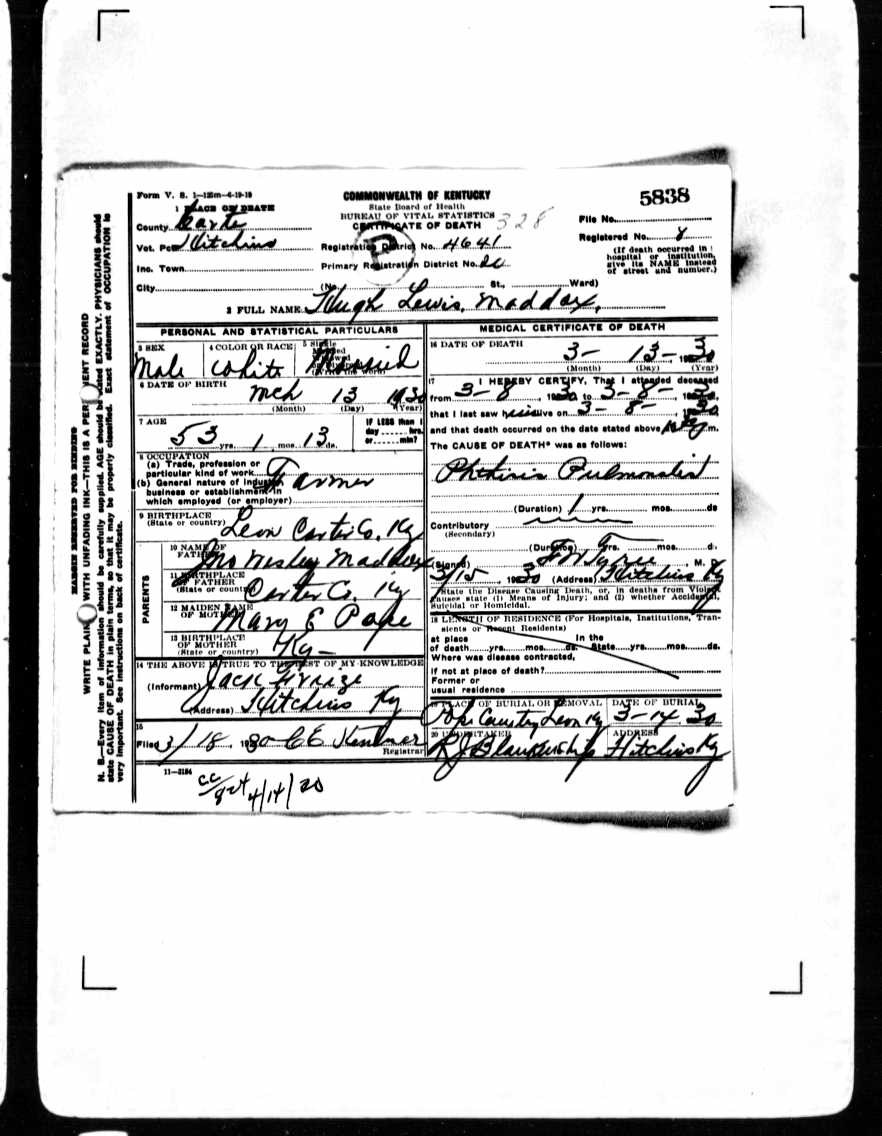 Form V. S. 1—125m—4-19-19
COMMONWEALTH OF KENTUCKY
State Board of Health
BUREAU OF VITAL STATISTICS 328
CERTIFICATE OF DEATH
5838
1 PLACE OF DEATH
County Carter
Vot. Pct. Hitchins
Inc. Town
City
Registration District No. 4641
Primary Registration District No.
(No. St., Ward)
File No.
Registered No. 8
(If death occurred in
hospital or institution,
give its NAME instead
of street and number.)
2 FULL NAME Hugh Lewis Maddox
PERSONAL AND STATISTICAL PARTICULARS
3 SEX
Male
4 COLOR OR RACE
White
5 Single
Married
Widowed
or Divorced
(Write the word)
Married
6 DATE OF BIRTH
Mch 13 1930
(Month) (Day) (Year)
7 AGE
53 yrs. 1 mos. 13 ds.
IF LESS than 1
day hrs.
or min?
8 OCCUPATION
(a) Trade, profession or
particular kind of work
(b) General nature of Industry
business or establishment in
which employed (or employer)
Farmer
9 BIRTHPLACE
(State or country) Leon Carter Co. Ky
PARENTS
10 NAME OF
FATHER Jno Wesley Maddox
11 BIRTHPLACE
OF FATHER
(State or country) Carter Co. Ky
12 MAIDEN NAME
OF MOTHER Mary E Pope
13 BIRTHPLACE
OF MOTHER
(State or country) Ky
14 THE ABOVE IS TRUE TO THE BEST OF MY KNOWLEDGE
(Informant) Jack
(Address) Hitchins Ky
15
Filed 3/18, 1930 C E
Registrar
11—3184
4/14/20
MEDICAL CERTIFICATE OF DEATH
16 DATE OF DEATH
3- 13- 1930
(Month) (Day) (Year)
17 I HEREBY CERTIFY, That I attended deceased
from 3-8, 1930 to 3-8-
that I last saw alive on 3-8-, 1930
and that death occurred on the date stated above, m.
The CAUSE OF DEATH* was as follows:
Phthisis Pulmonalis
(Duration) 1 yrs. mos. ds
Contributory
(Secondary)
(Duration) yrs. mos. d.
(Signed) M. D.
3/15, 1930 (Address) Hitchins Ky
State the Disease Causing Death, or, in deaths from Violent
Causes state (1) Means of Injury; and (2) whether Accidental,
Suicidal or Homicidal.
18 LENGTH OF RESIDENCE (For Hospitals, Institutions, Tran-
sients or Recent Residents)
at place In the
of death yrs. mos. ds. State yrs. mos. ds.
Where was disease contracted,
if not at place of death?
Former or
usual residence
19 PLACE OF BURIAL OR REMOVAL
Leon Ky
DATE OF BURIAL
3-14 30
20 UNDERTAKER
R J Blankenship
ADDRESS
Hitchins Ky
MARGIN RESERVED FOR BINDING
WRITE PLAINLY WITH UNFADING INK—THIS IS A PERMANENT RECORD
N. B.—Every item of information should be carefully supplied. AGE should be stated EXACTLY. PHYSICIANS should
state CAUSE OF DEATH in plain terms, so that it may be properly classified. Exact statement of OCCUPATION is
very important. See instructions on back of certificate.